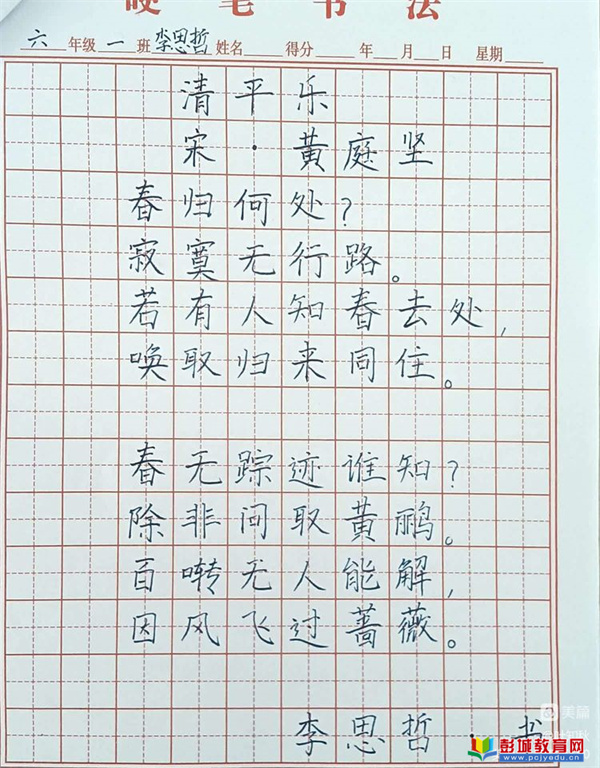 硬笔书法
六年级一班李思哲姓名 得分 年 月 日 星期
清平乐
宋·黄庭坚
春归何处?
寂寞无行路。
若有人知春去处,
唤取归来同住。
春无踪迹谁知?
除非问取黄鹂。
百啭无人能解,
因风飞过蔷薇。
李思哲·书
美篇
彭城教育网
www.pcjyedu.cn